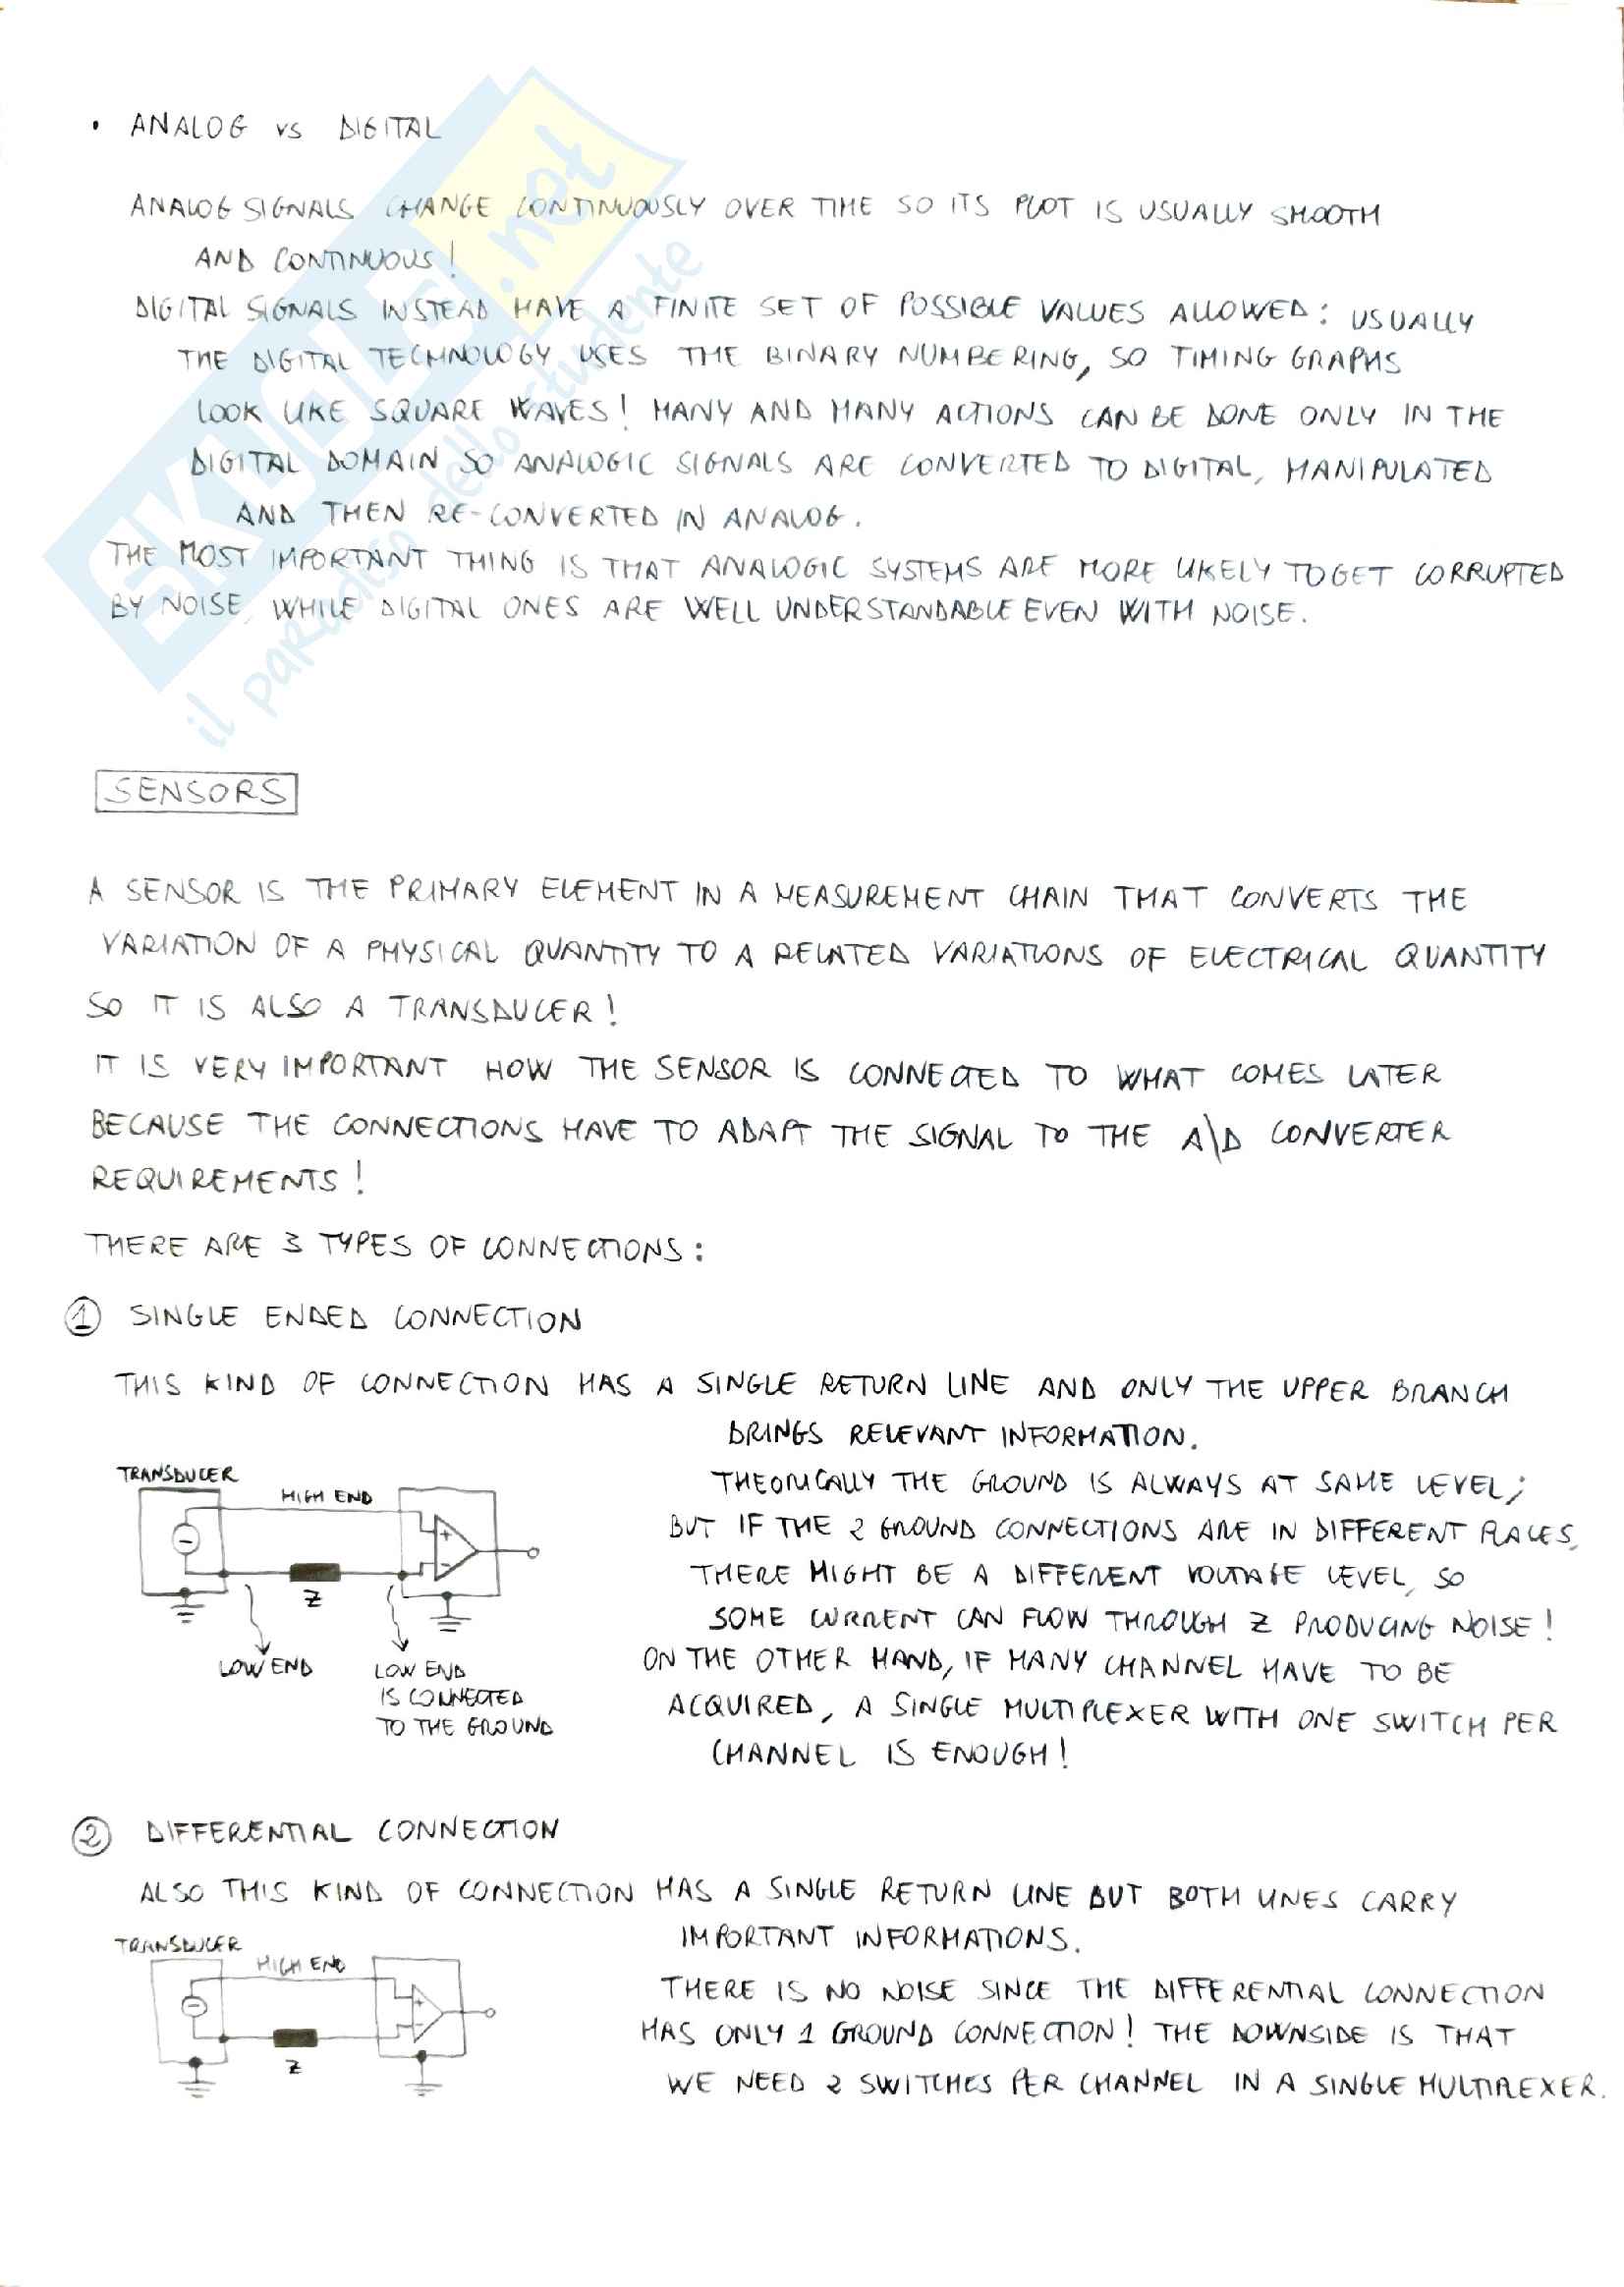 • ANALOG vs DIGITAL
ANALOG SIGNALS CHANGE CONTINUOUSLY OVER TIME SO ITS PLOT IS USUALLY SMOOTH
AND CONTINUOUS!
DIGITAL SIGNALS INSTEAD HAVE A FINITE SET OF POSSIBLE VALUES ALLOWED: USUALLY
THE DIGITAL TECHNOLOGY USES THE BINARY NUMBERING, SO TIMING GRAPHS
LOOK LIKE SQUARE WAVES! MANY AND MANY ACTIONS CAN BE DONE ONLY IN THE
DIGITAL DOMAIN SO ANALOGIC SIGNALS ARE CONVERTED TO DIGITAL, MANIPULATED
AND THEN RE-CONVERTED IN ANALOG.
THE MOST IMPORTANT THING IS THAT ANALOGIC SYSTEMS ARE MORE LIKELY TO GET CORRUPTED
BY NOISE, WHILE DIGITAL ONES ARE WELL UNDERSTANDABLE EVEN WITH NOISE.
SKUOLA.net
il paradiso dello studente
SENSORS
A SENSOR IS THE PRIMARY ELEMENT IN A MEASUREMENT CHAIN THAT CONVERTS THE
VARIATION OF A PHYSICAL QUANTITY TO A RELATED VARIATIONS OF ELECTRICAL QUANTITY
SO IT IS ALSO A TRANSDUCER!
IT IS VERY IMPORTANT HOW THE SENSOR IS CONNECTED TO WHAT COMES LATER
BECAUSE THE CONNECTIONS HAVE TO ADAPT THE SIGNAL TO THE A\D CONVERTER
REQUIREMENTS!
THERE ARE 3 TYPES OF CONNECTIONS:
① SINGLE ENDED CONNECTION
THIS KIND OF CONNECTION HAS A SINGLE RETURN LINE AND ONLY THE UPPER BRANCH
BRINGS RELEVANT INFORMATION.
THEORICALLY THE GROUND IS ALWAYS AT SAME LEVEL;
BUT IF THE 2 GROUND CONNECTIONS ARE IN DIFFERENT PLACES,
THERE MIGHT BE A DIFFERENT VOLTAGE LEVEL, SO
SOME CURRENT CAN FLOW THROUGH Z PRODUCING NOISE!
ON THE OTHER HAND, IF MANY CHANNEL HAVE TO BE
ACQUIRED, A SINGLE MULTIPLEXER WITH ONE SWITCH PER
CHANNEL IS ENOUGH!
TRANSDUCER
HIGH END
+
−
Z
LOW END
LOW END
IS CONNECTED
TO THE GROUND
② DIFFERENTIAL CONNECTION
ALSO THIS KIND OF CONNECTION HAS A SINGLE RETURN LINE BUT BOTH LINES CARRY
IMPORTANT INFORMATIONS.
THERE IS NO NOISE SINCE THE DIFFERENTIAL CONNECTION
HAS ONLY 1 GROUND CONNECTION! THE DOWNSIDE IS THAT
WE NEED 2 SWITCHES PER CHANNEL IN A SINGLE MULTIPLEXER.
TRANSDUCER
HIGH END
+
−
Z